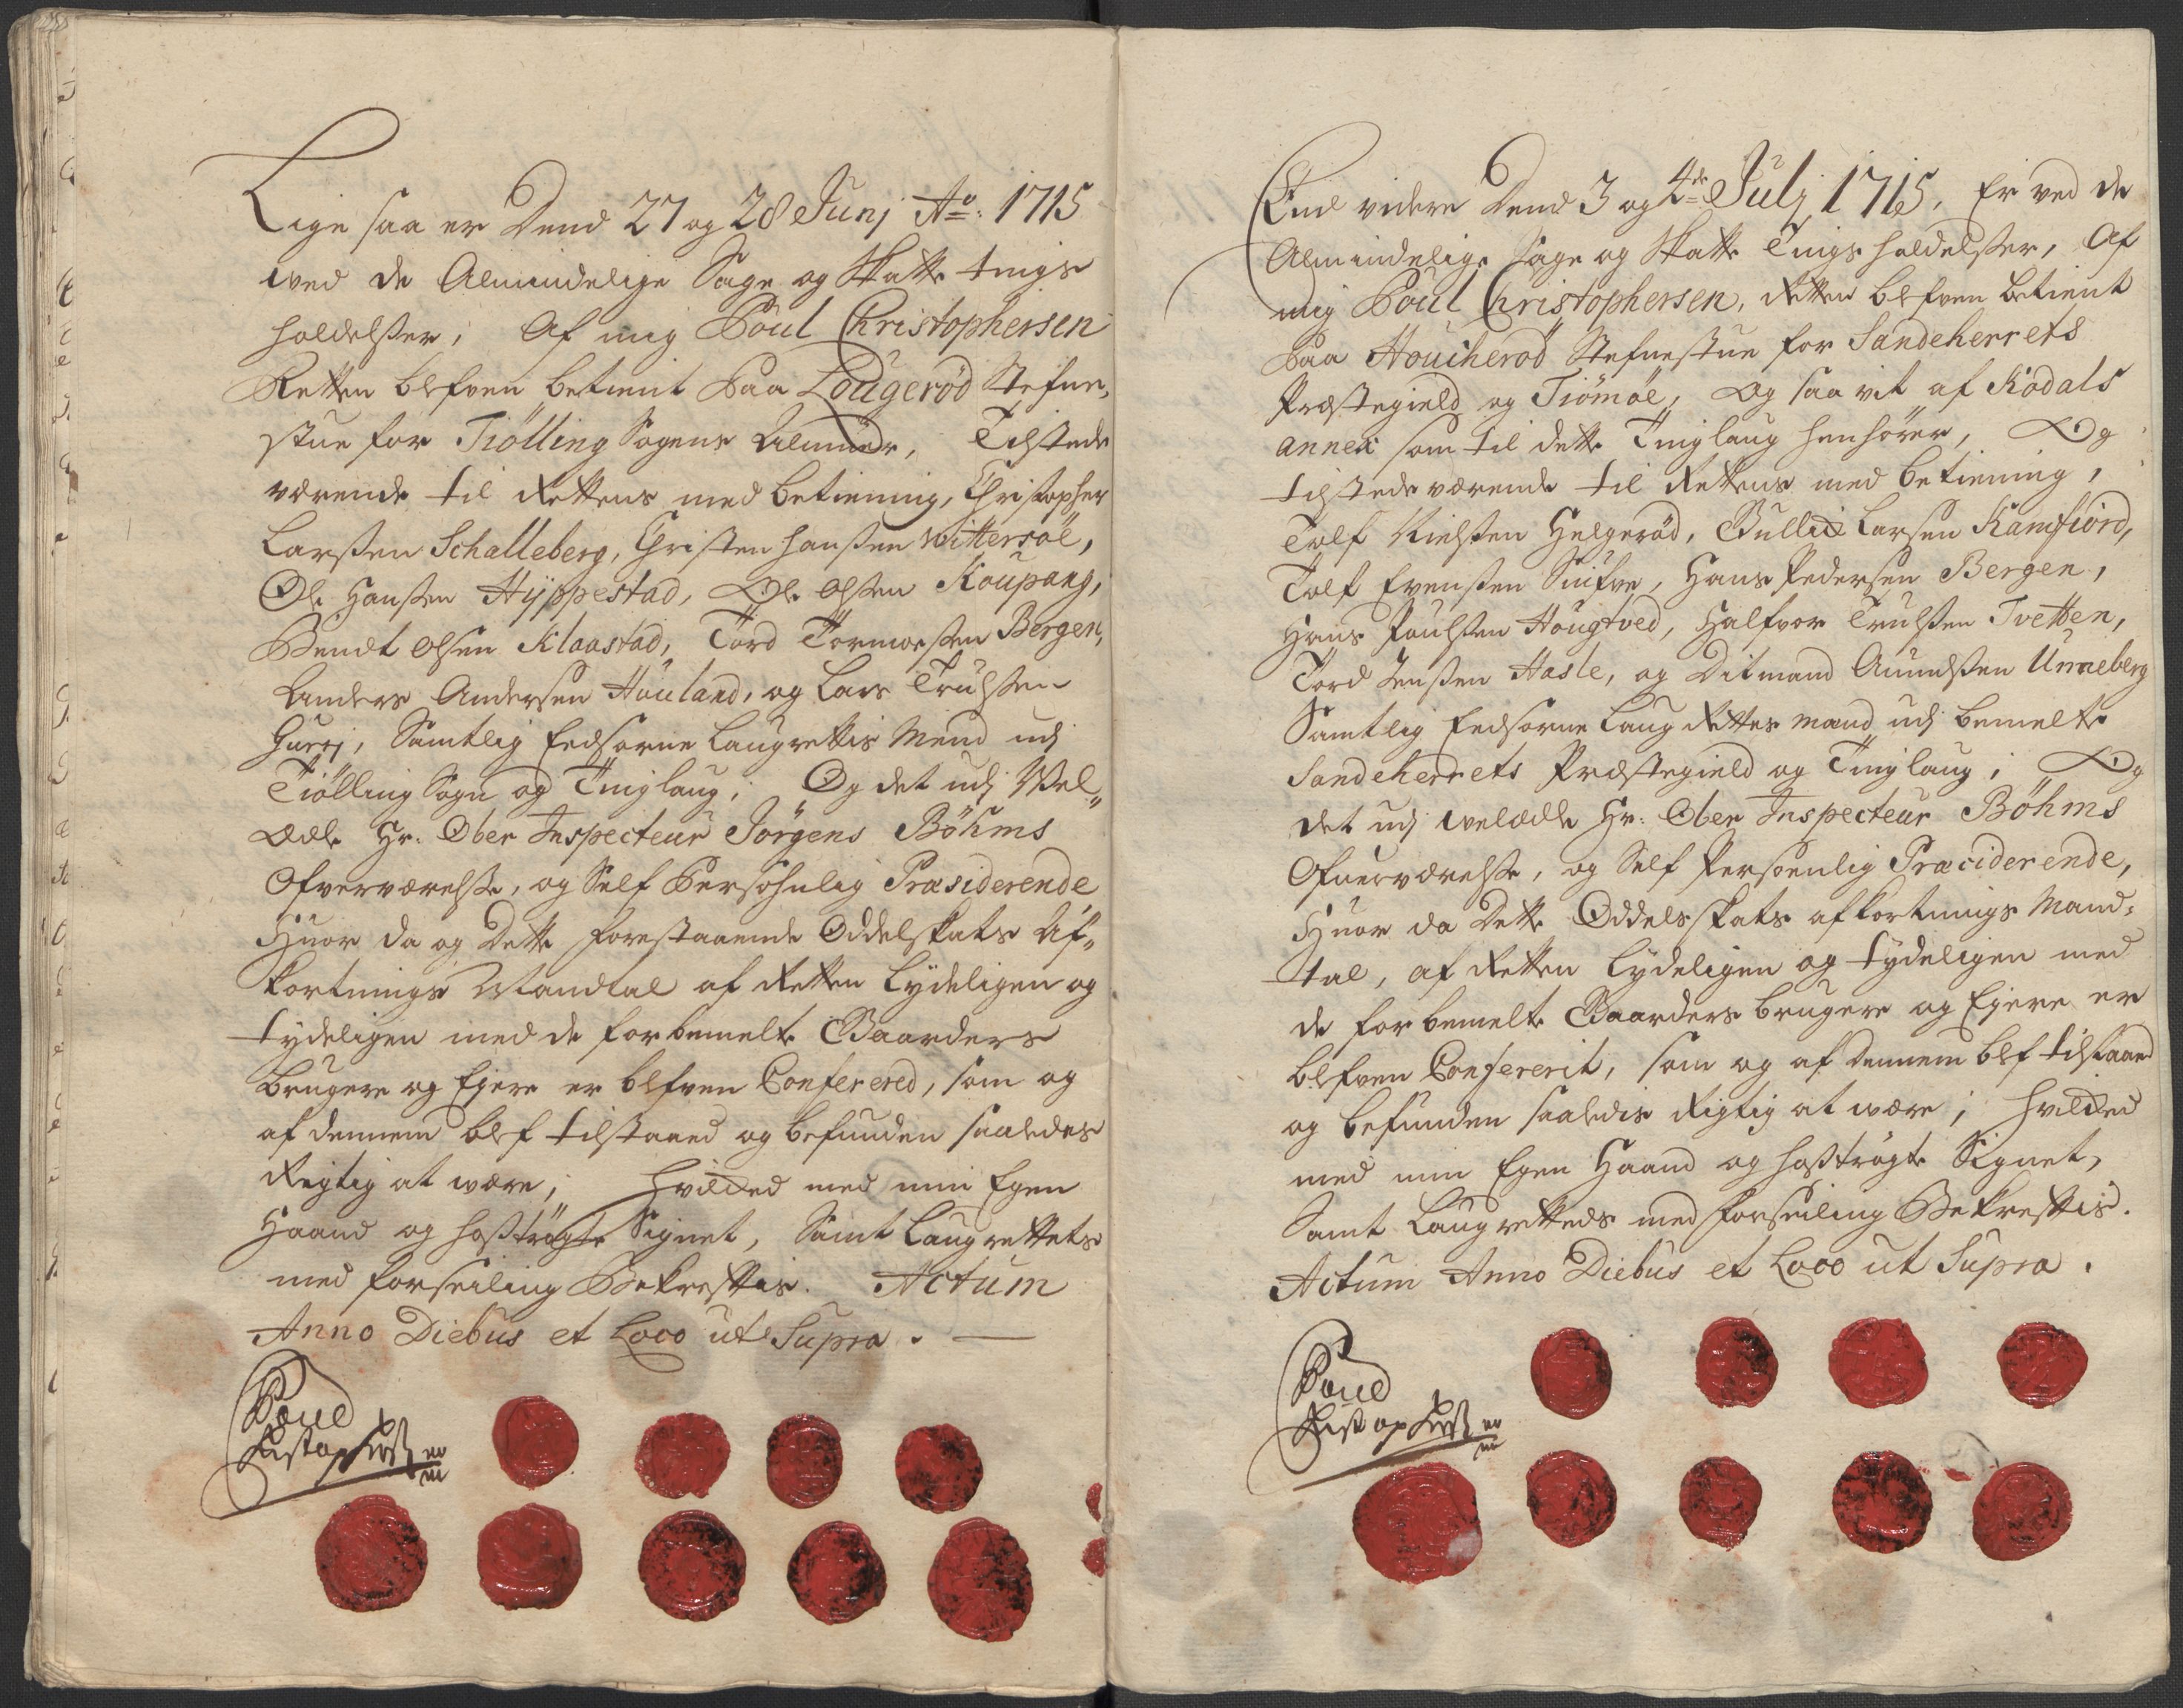 Lige saa er Dend 27 og 28 Junj Ao: 1715
wed de Almindelige Sage og Skatte tings
holdelsser, Af mig Poul Christophersen
Retten blefven betient Paa Lougerød Stefne,
stue for Tiølling Sogens Almue, Tilstede
værende til Rettens med betiening, Christopher
Larssen Schalleberg, Christen Hanssen Wittersøe,
Ole Hanssen Hÿppestad, Ole Olssen Koupang,
Bendt Olsen Klaastad, Tord Tormoessen Bergen,
Anders Andersen Houland, og Lars Trulssen
Gurrj, Samtlig Eedsorne Laugrettis Mend udj
Tiølling Sogn og Tinglaug, Og det udj Wel„
Ædle Hr. Ober Inspecteur Jörgens Böhms
Ofverværelsse, og Self Persohnlig Præsiderende
Huor da og Dette forestaaende Oddelskats Af„
kortnings Mandtal af Retten Lydeligen og
tydeligen med de forbemelte Gaarders
brugere og Ejere er blefven Conferered, som og
af dennem blef tilstaaed og befunden saaledes
Rigtig at være, Hvilked med min Egen
Haand og hoströgte Signet, Samt Laugrettets
med forseiling Bekrefftis. Actum
Anno Diebus et Loco ut Supra.
Poul
Christophersen
End videre Dend 3 og 4de Julj 1715, Er ved de
Almindelige Sage og Skatte Tings holdelsser, Af
mig Poul Christophersen, Retten blefven betient
Paa Houcherød Stefnestue for Sandeherrets
Præstegield og Tiömöe, Og saa vit af Kodals
annex som til dette Tinglaug henhörer, Og
tilstedeværende til Rettens med betiening,
Tolf Nielssen Helgerød, Gullich Larsen Kamfiord,
Tolf Evenssen , Hans Pedersen Bergen,
Hans Poulssen Hougtved, Halfvor Trulssen Tvetten,
Tord Jenssen Hasle, og Ditmand Amundssen Unneberg
Samtlig Eedsorne Laug Rettes mænd udj bemelte
Sandeherrets Præstegield og Tinglaug, Og
det udj welædle Hr: Ober Inspecteur Böhms
Ofuerværelsse, og Self Persoenlig Præciderende,
Huor da Dette Oddelsskats afkortnings Mand„
tal, af Retten Lydeligen og tydeligen med
de forbemelte Gaarders brugere og Ejere er
blefven Confererit, som og af dennem blef tilstaaed
og befunden saaledis Rigtig at være, Hvilked
med min Egen Haand og hoströgte Signet,
Samt Laugretteds med forseiling Bekrefftis.
Actum Anno Diebus et Loco ut Supra.
Poul
Christophersen